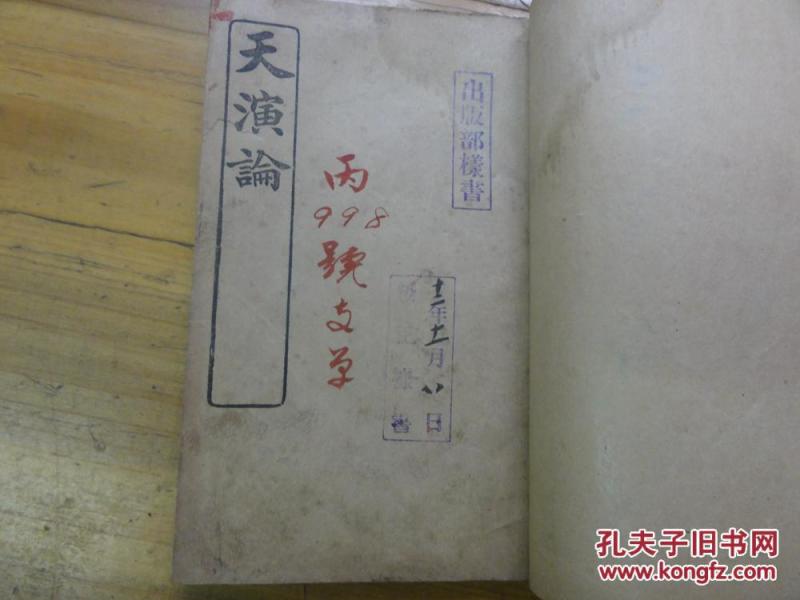 天演論
出版部樣書
丙
998
號支單
十二年十一月八日
書
孔夫子旧书网
www.kongfz.com